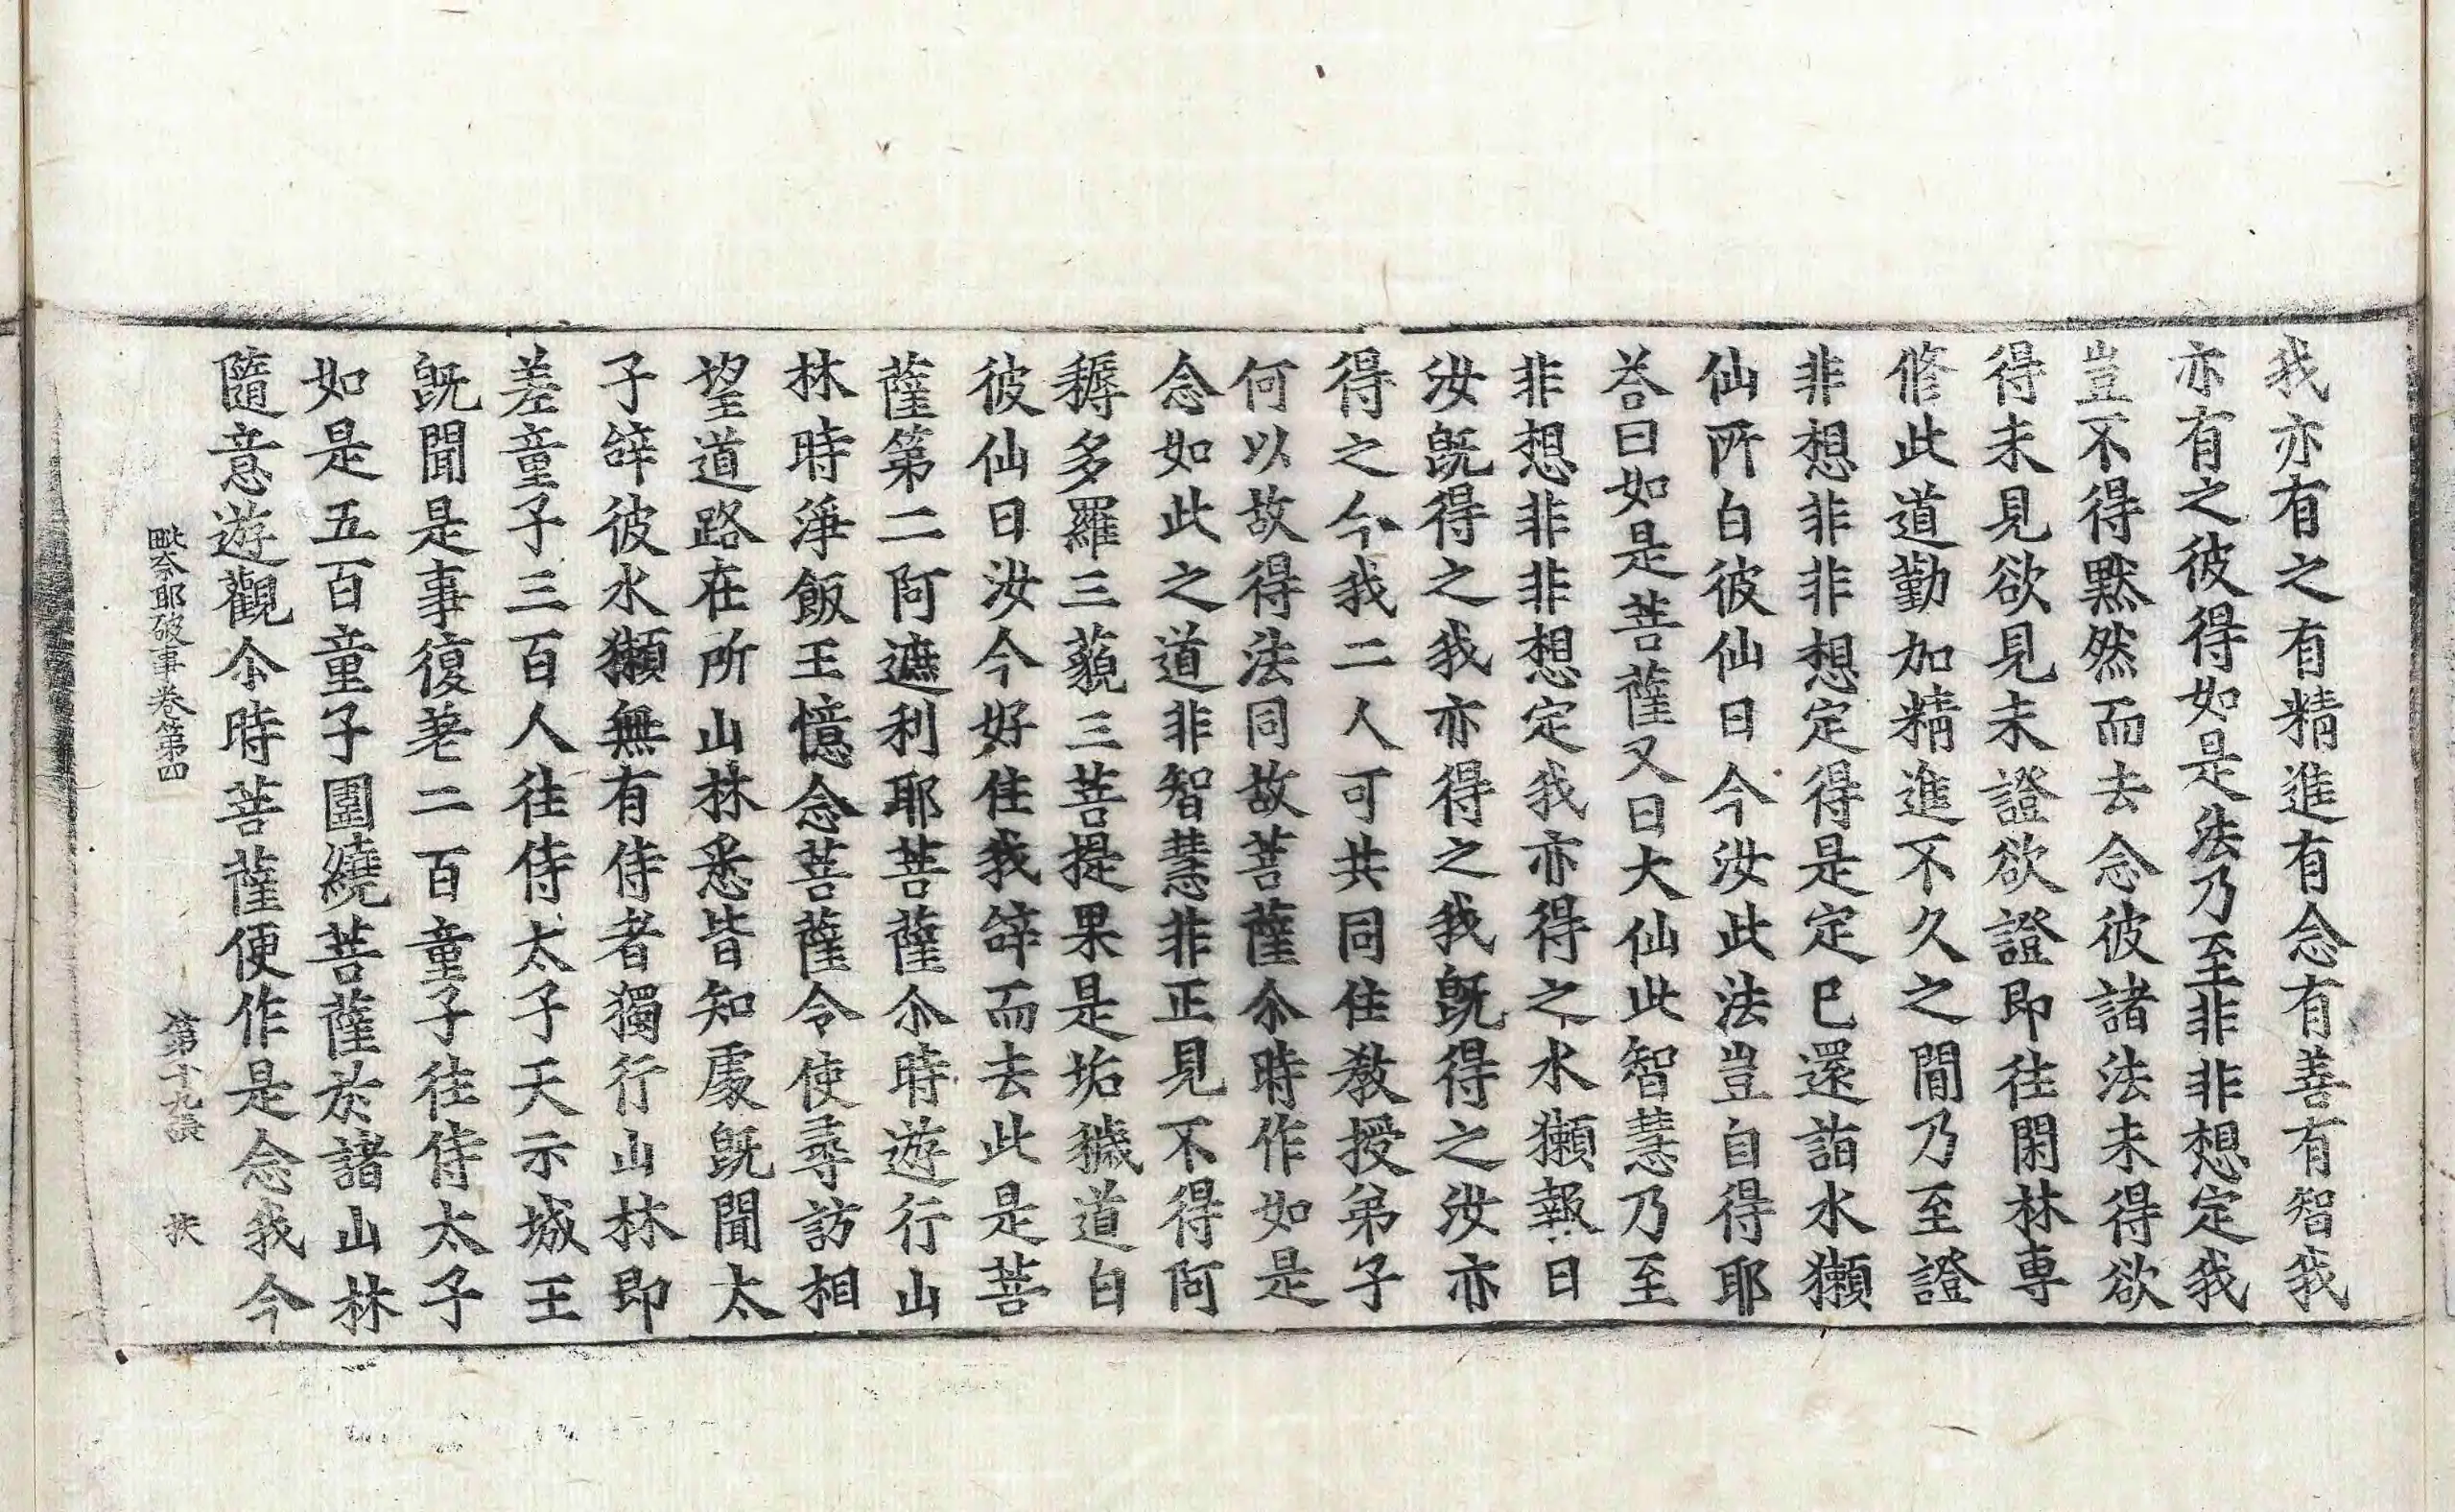 我亦有之有精進有念有善有智我
亦有之彼得如是法乃至非非想定我
豈不得默然而去念彼諸法未得欲
得未見欲見未證欲證即往閑林専
修此道勤加精進不久之閒乃至證
非想非非想定得是定已還詣水獺
仙所白彼仙曰今汝此法豈自得耶
荅曰如是菩薩又曰大仙此智慧乃至
非想非非想定我亦得之水獺報曰
汝旣得之我亦得之我旣得之汝亦
得之今我二人可共同住教授弟子
何以故得法同故菩薩尒時作如是
念如此之道非智慧非正見不得阿
耨多羅三藐三菩提果是垢穢道白
彼仙曰汝今好住我辝而去此是菩
薩第二阿遮利耶菩薩尒時遊行山
林時淨飯王憶念菩薩令使尋訪相
望道路在所山林悉皆知處旣聞太
子辝彼水獺無有侍者獨行山林即
差童子三百人往侍太子天示城王
旣聞是事復差二百童子往侍太子
如是五百童子圍繞菩薩於諸山林
隨意遊觀尒時菩薩便作是念我今
毗奈耶破事卷第四 第十九張 扶